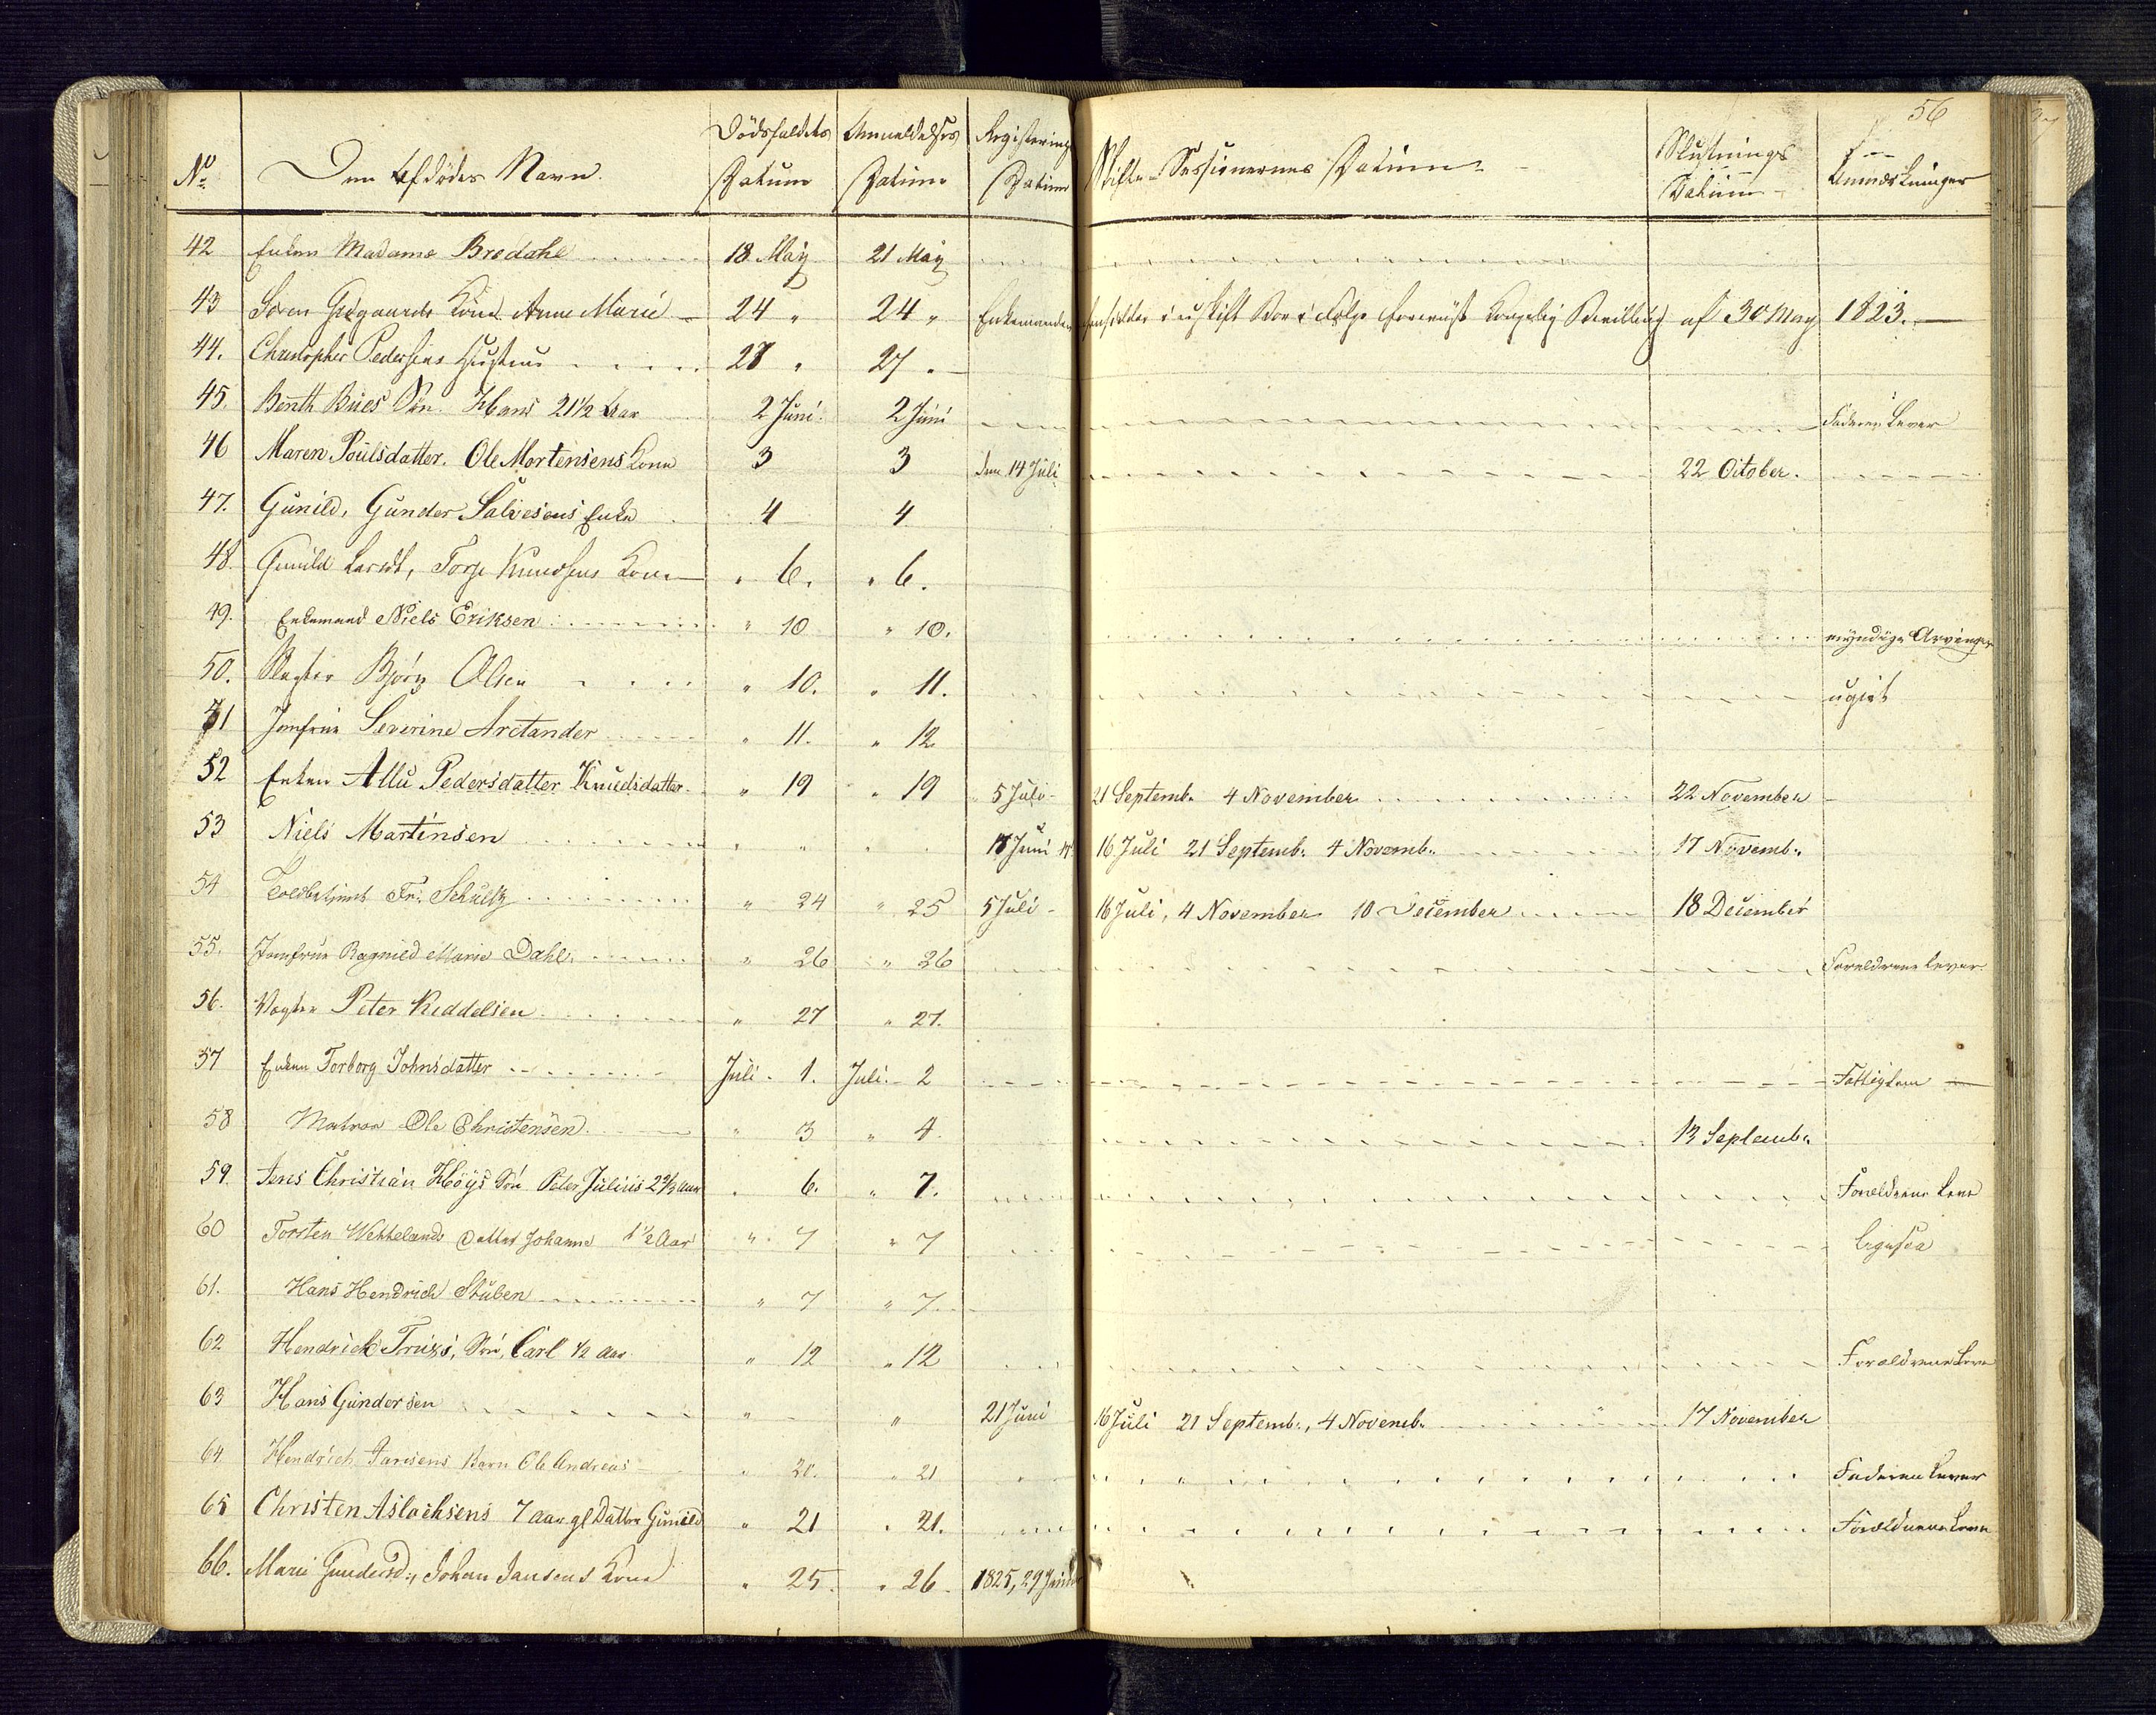 56
No Den Afdödes Navn. Dödsfaldets Datum Anmeldelses Datum Registerings Datum Skifte-Sessionernes Datum Slutnings Datum Anmærkninger
42 Enken Madame Bredahl 18 May 21 May
43 Sören Kone Anne Marie 24 " 24 " Enkemanden hensidder i uskift Boe i følge Kongelig Bevilling af 30 May 1823.
44. Christopher Pedersens Hustrue 27 "
45. Benth Bües Sön Hans 21½ Aar 2 Juni 2 Juni Faderen lever
46 Maren Poulsdatter. Ole Mortensens Kone 3 3 den 14 Juli 22 October.
47. Gunild, Gunder Salvesens Enke 4 4
48. Gunild Larsdt, Torje Knudsens Kone " 6. " 6.
49. Enkemand Niels Eriksen " 10 " 10. myndige Arvinger
50. Björn Olsen " 10. " 11. ugivt
51 Jomfrue Severine Arctander " 11. " 12
52 Enken Pedersdatter Knudsdatter " 19 " 19 5 Juli 21 Septemb. 4 November 22 November
53 Niels Martinsen " " 16 Juli 21 Septemb. 4 Novemb. 17 Novemb.
54 Toldbetjent Fr. Schultz " 24 " 25 5 Juli 16 Juli, 4 November 10 December 18 December
55. Jomfrue Ragnild Marie Dahl " 26 " 26 Forældrene lever
56. Vægter Peter Keddelsen " 27 " 27.
57 Enken Torborg Johnsdatter Juli 1. Juli 2 Fattiglem
58 Matros Ole Christensen " 3 " 4. 13 Septemb.
59. Jens Christian Höys Sön Peter Julius 2 Aar " 6. " 7. Forældrene leve
60 Torsten Datter Johanne 1½ Aar " 7 " 7 ligesaa
61. Hans Hendrich Stuben " 7 " 7
62 Hendrick Sön, Carl ½ Aar " 12 " 12 Forældrene leve
63 Hans Gundersen " " 21 Juni 16 Juli 21 Septemb., 4 Novemb. 17 November
64 Hendrich Jansens Barn Ole Andreas " 20. " 21 Faderen lever
65 Christen Aslachsens 7 Aar gl Datter Gunild " 21 " 21. Forældrene leve
66. Marie Gundersd., Johan Jansens Kone " 25. " 26. 1825, 29